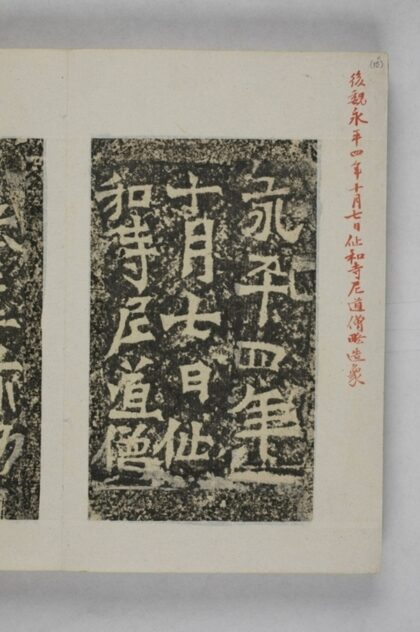 後魏永平四年十月七日仙和寺尼道僧略造象
永平四年
十月七日仙
和寺尼道僧